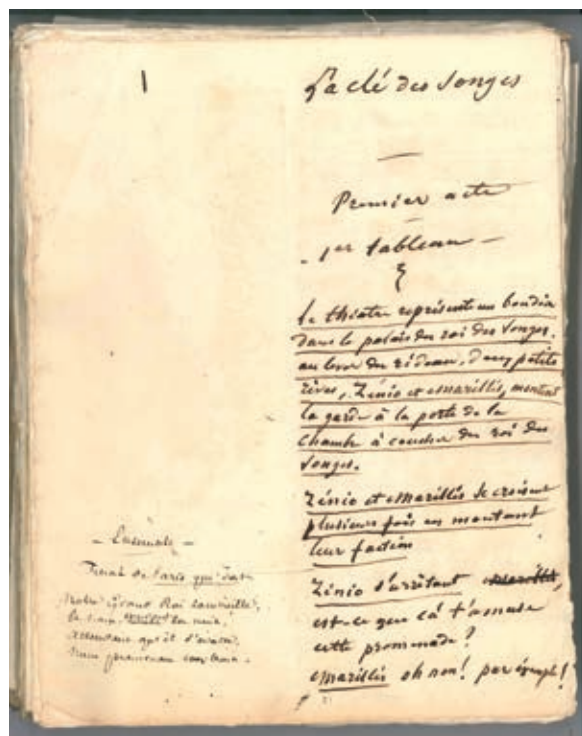 1
La clé des songes
Premier acte
1er tableau
le théâtre représente un boudoir
dans le palais du roi des songes.
au lever du rideau, deux petits
rêves, Zénio et Marillis, montent
la garde à la porte de la
chambre à coucher du roi des
songes.
Zénio et Marillis se croisent
plusieurs fois en montant
leur faction
Zénio s'arrêtant Marillis,
est-ce que cà t'amuse
cette promenade ?
Marillis oh non ! par exemple !
Ensemble
notre grand Roi
la nuit